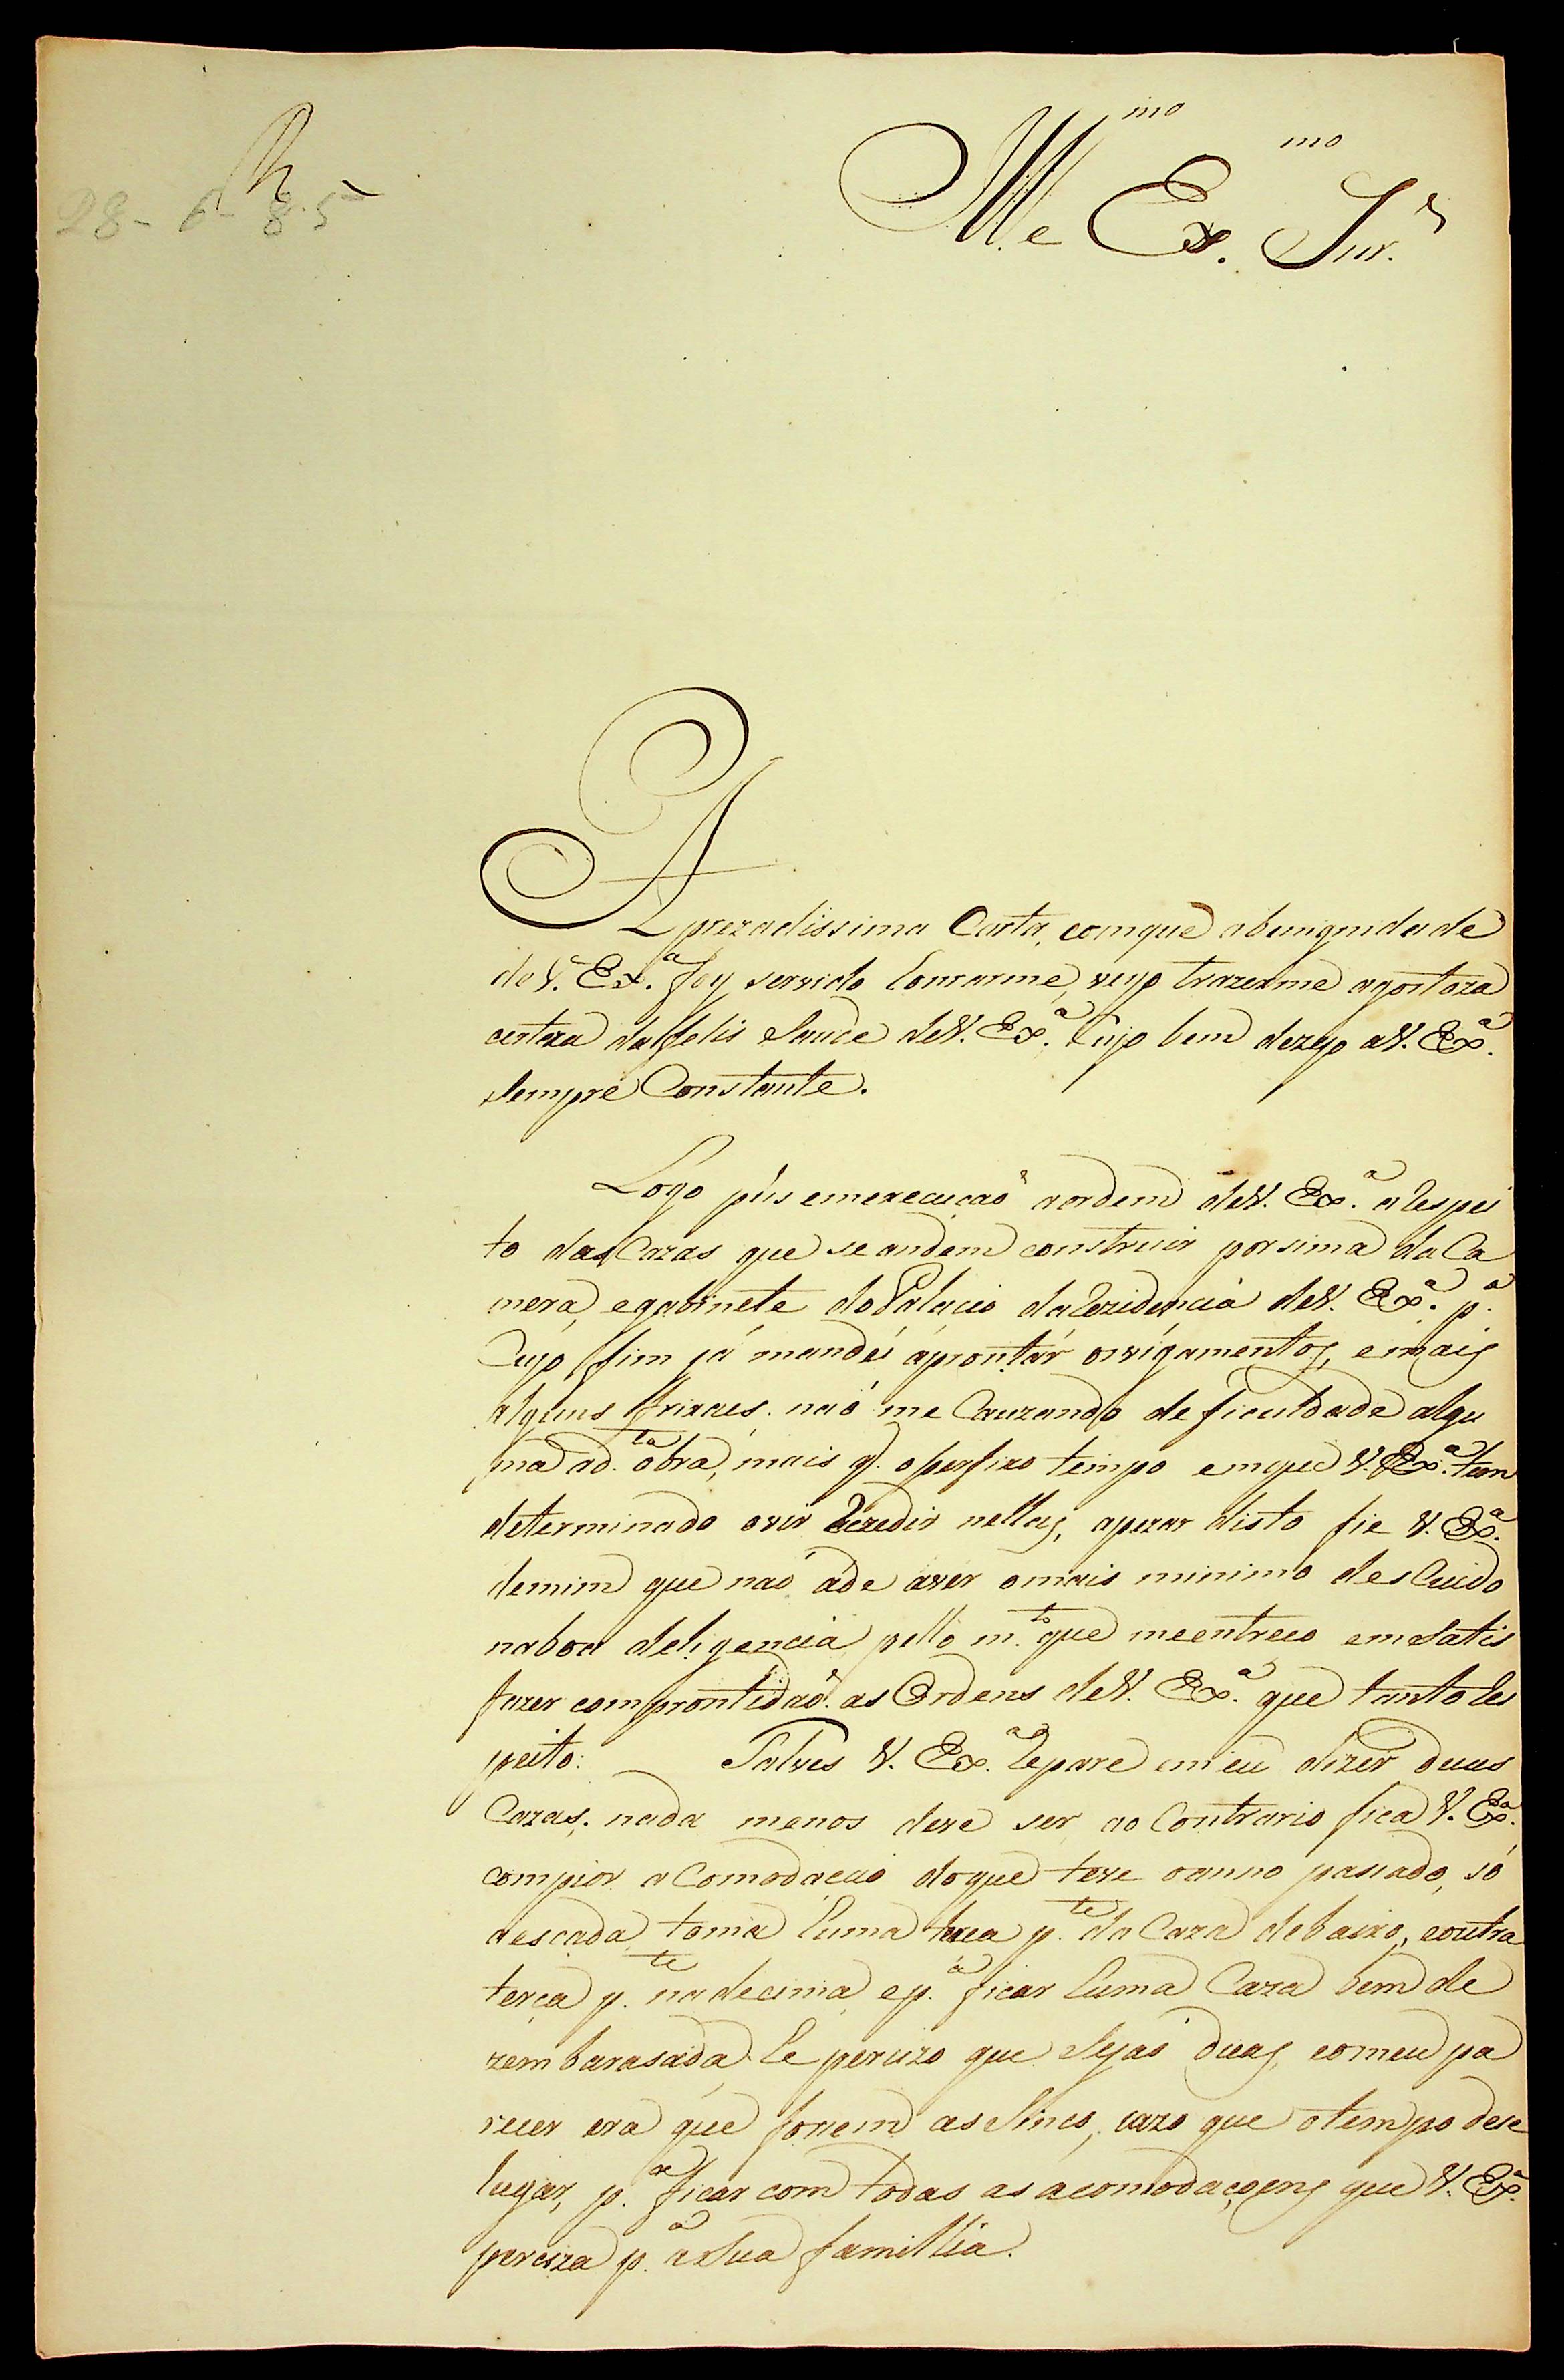 R
28-6-85
Ill.mo e Ex.mo Snr.
A prezadissima Carta, comque abenignidade
deV. Ex.a foy servido honrarme, veyo trazerme agostoza
certeza dafelis Saude deV. Ex.a Cujo bem dezejo aV. Ex.a
Sempre Constante.
Logo pus emexecução aordem deV. Ex.a aRespei
to dasCazas que seandem construir porsima daCa
mera, egabinete doPalacio daRezidencia deV. Ex.a p.a
Cujo fim já mandei áprontár osvigamentos, emais
alguns frixaes. naó me Cauzando deficuldade algu
ma ad.ta obra, mais q. oprefixo tempo emque V. Ex.a tem
determinado ovir Rezedir nellas, apezar disto fie V. Ex.a
demim que naó áde aver omais minimo desCuido
naboa deligencia, pello m.to que meentreço emSatis
fazer comprontidaõ. as Ordens deV. Ex.a que tantoRes
peito: Talves V. Ex.a Repare emeu dizer duas
Cazas. nada menos deve ser, ao Contrario fica V. Ex.a
compior aComodação doque teve oanno passado, só
aescada toma huma terça p.te da Caza debaixo, eoutra
terça p.te nadecima, ep.a ficar huma Caza bem de
zembarasada he perçizo que Sejaó duas, eomeu pa
recer era que fossem as Sinco, cazo que otempo dese
lugar, p.a ficar com todas as acomodaçoens que V. Ex.a
perciza p.a aSua famillia.